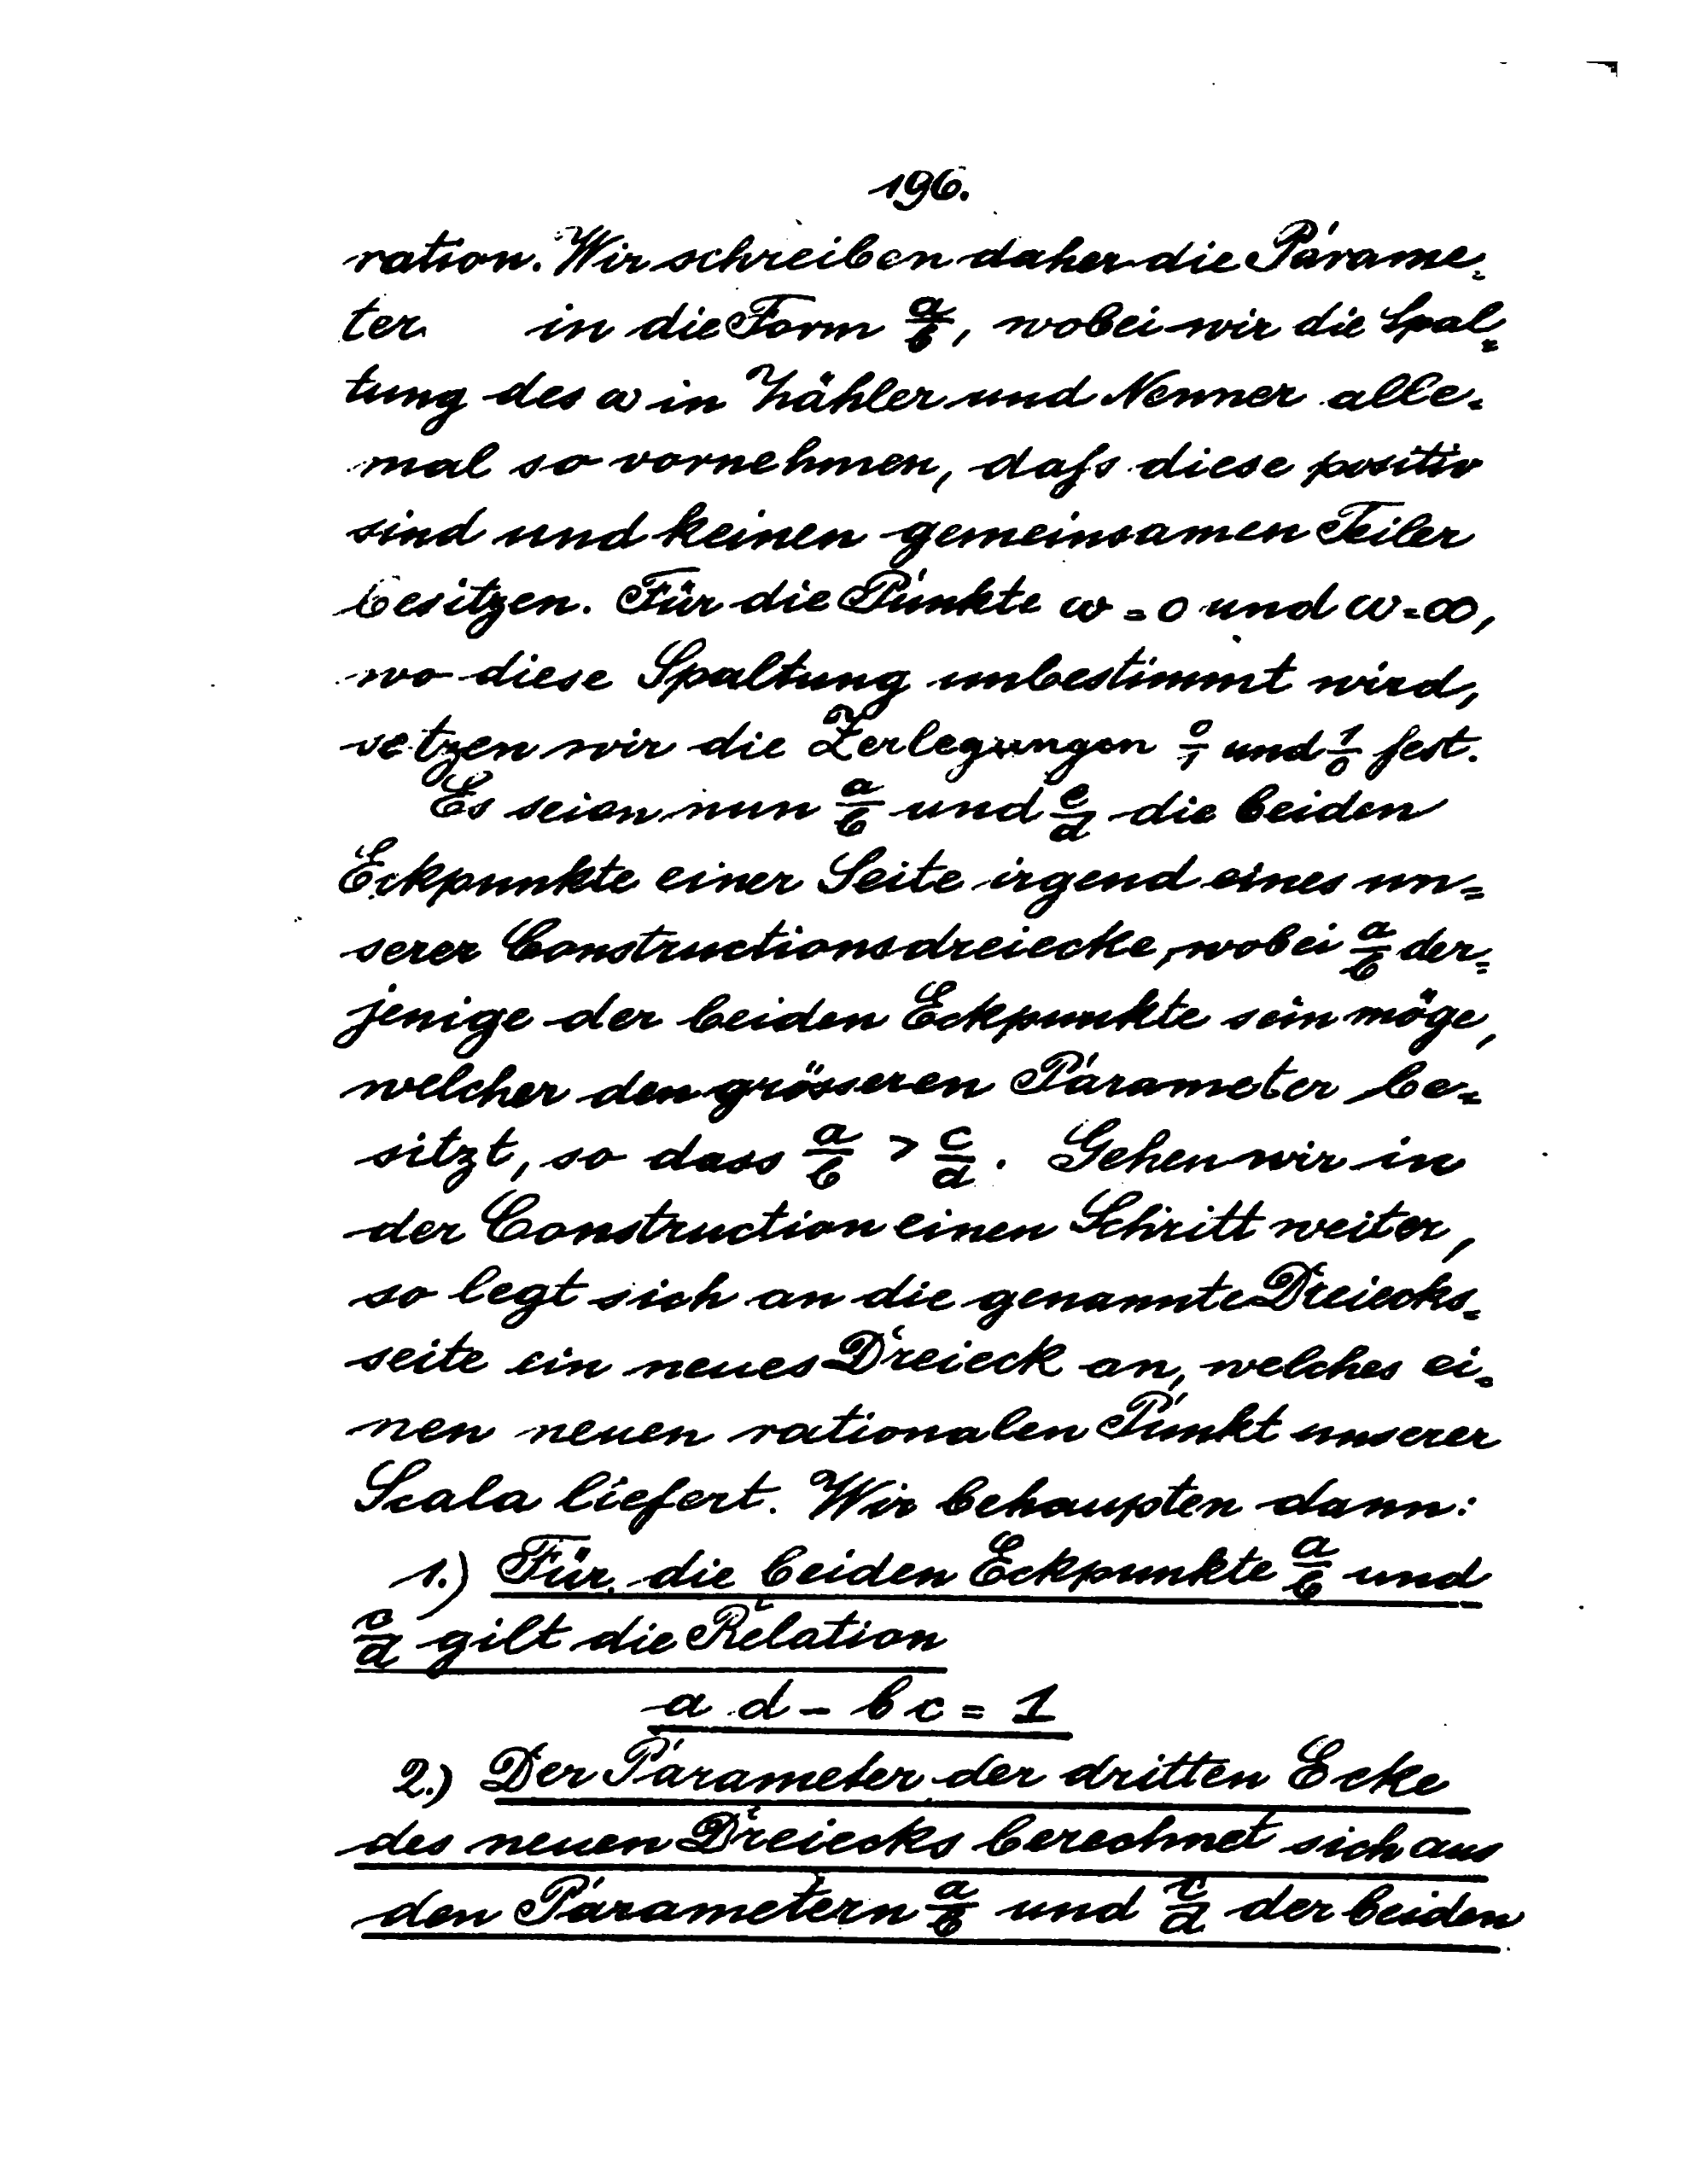 196.
ration. Wir schreiben daher die Parame-
ter in die Form a/b, wobei wir die Spal-
tung des ω in Zähler und Nenner alle-
mal so vornehmen, dafs diese positiv
sind und keinen gemeinsamen Teiler
besitzen. Für die Punkte ω = 0 und ω = ∞,
wo diese Spaltung unbestimmt wird,
setzen wir die Zerlegungen 0/1 und 1/0 fest.
Es seien nun a/b und c/d die beiden
Eckpunkte einer Seite irgend eines un-
serer Constructionsdreiecke, wobei a/b der-
jenige der beiden Eckpunkte sein möge,
welcher den grösseren Parameter be-
sitzt, so dass a/b > c/d. Gehen wir in
der Construction einen Schritt weiter,
so legt sich an die genannte Dreiecks-
seite ein neues Dreieck an, welches ei-
nen neuen rationalen Punkt unserer
Scala liefert. Wir behaupten dann:
1.) Für die beiden Eckpunkte a/b und
c/d gilt die Relation
a d - b c = 1
2.) Der Parameter der dritten Ecke
des neuen Dreiecks berechnet sich aus
den Parametern a/b und c/d der beiden